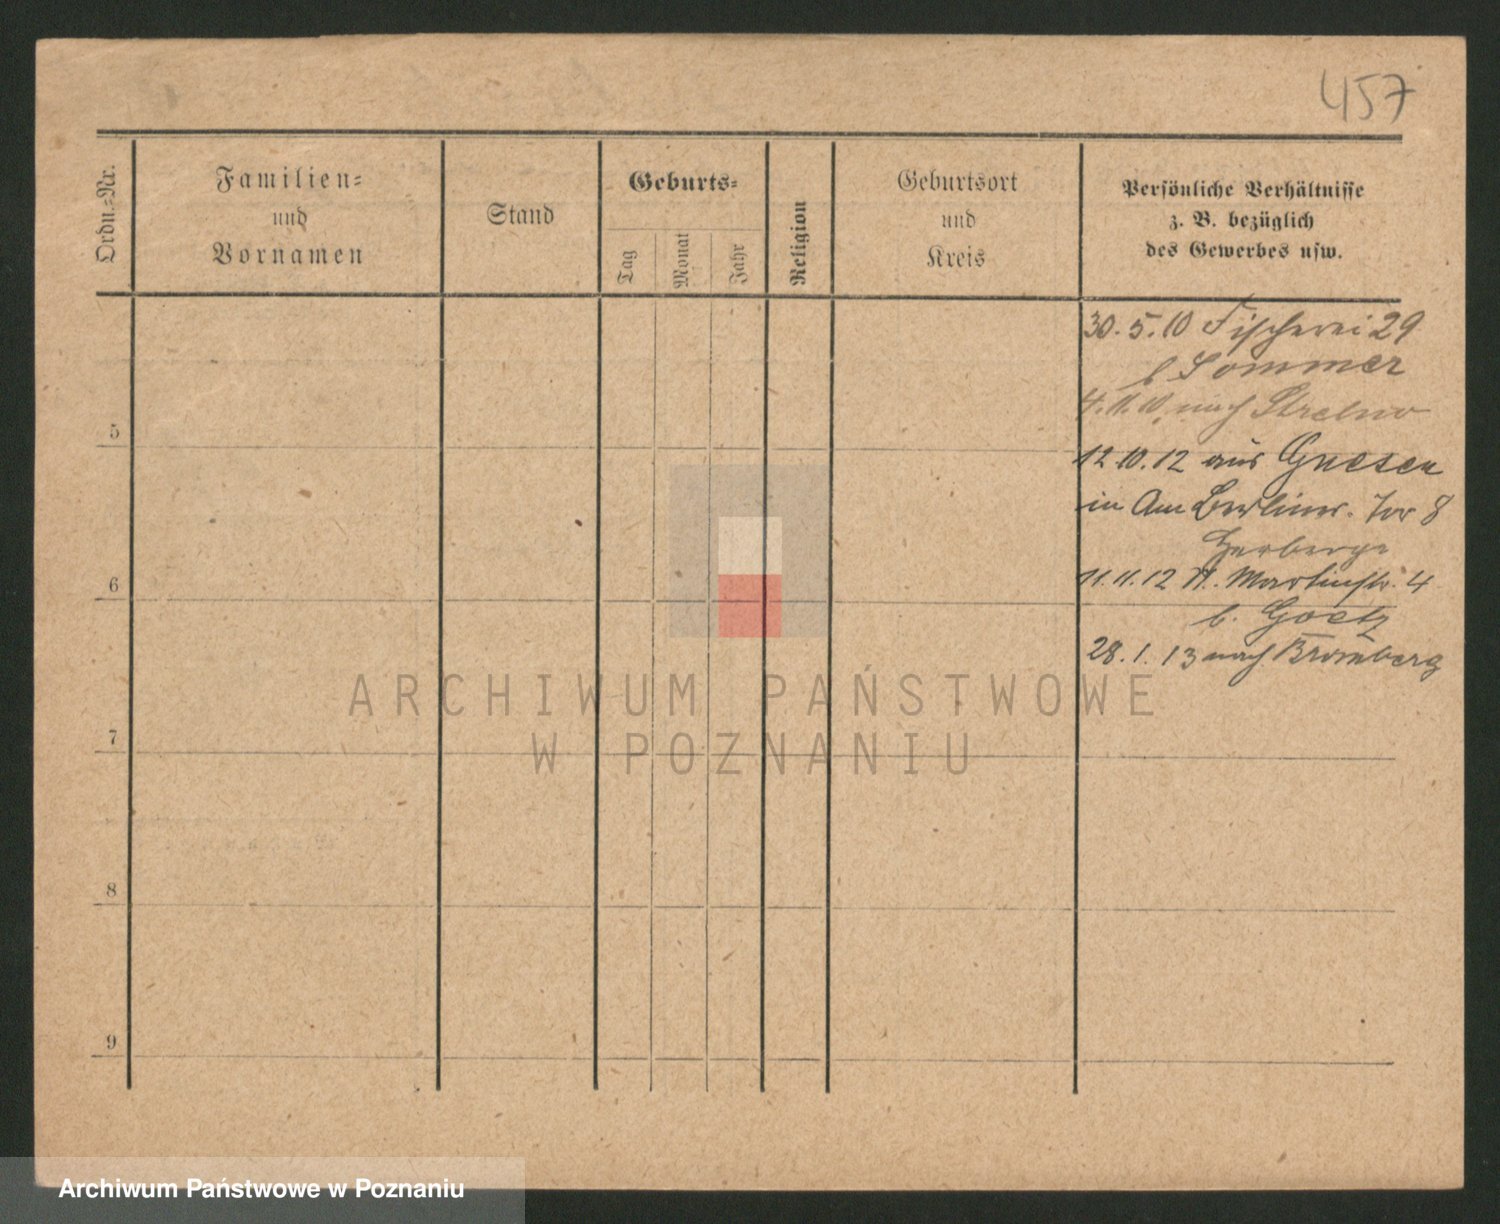 457
Ordn.-Nr.
Familien-
und
Vornamen
Stand
Geburts-
Tag
Monat
Jahr
Religion
Geburtsort
und
Kreis
Persönliche Verhältnisse
z. B. bezüglich
des Gewerbes usw.
30. 5. 10 Fischerei 29
b Sommer
4. 11. 10 nach Strelno
5
12. 10. 12 aus Gnesen
in Am Berliner. Tor 8
Herberge
6
11. 11. 12 St. Martinstr. 4
b. Goetz
28. 1. 13 nach Bromberg
ARCHIWUM PAŃSTWOWE
W POZNANIU
7
8
9
Archiwum Państwowe w Poznaniu